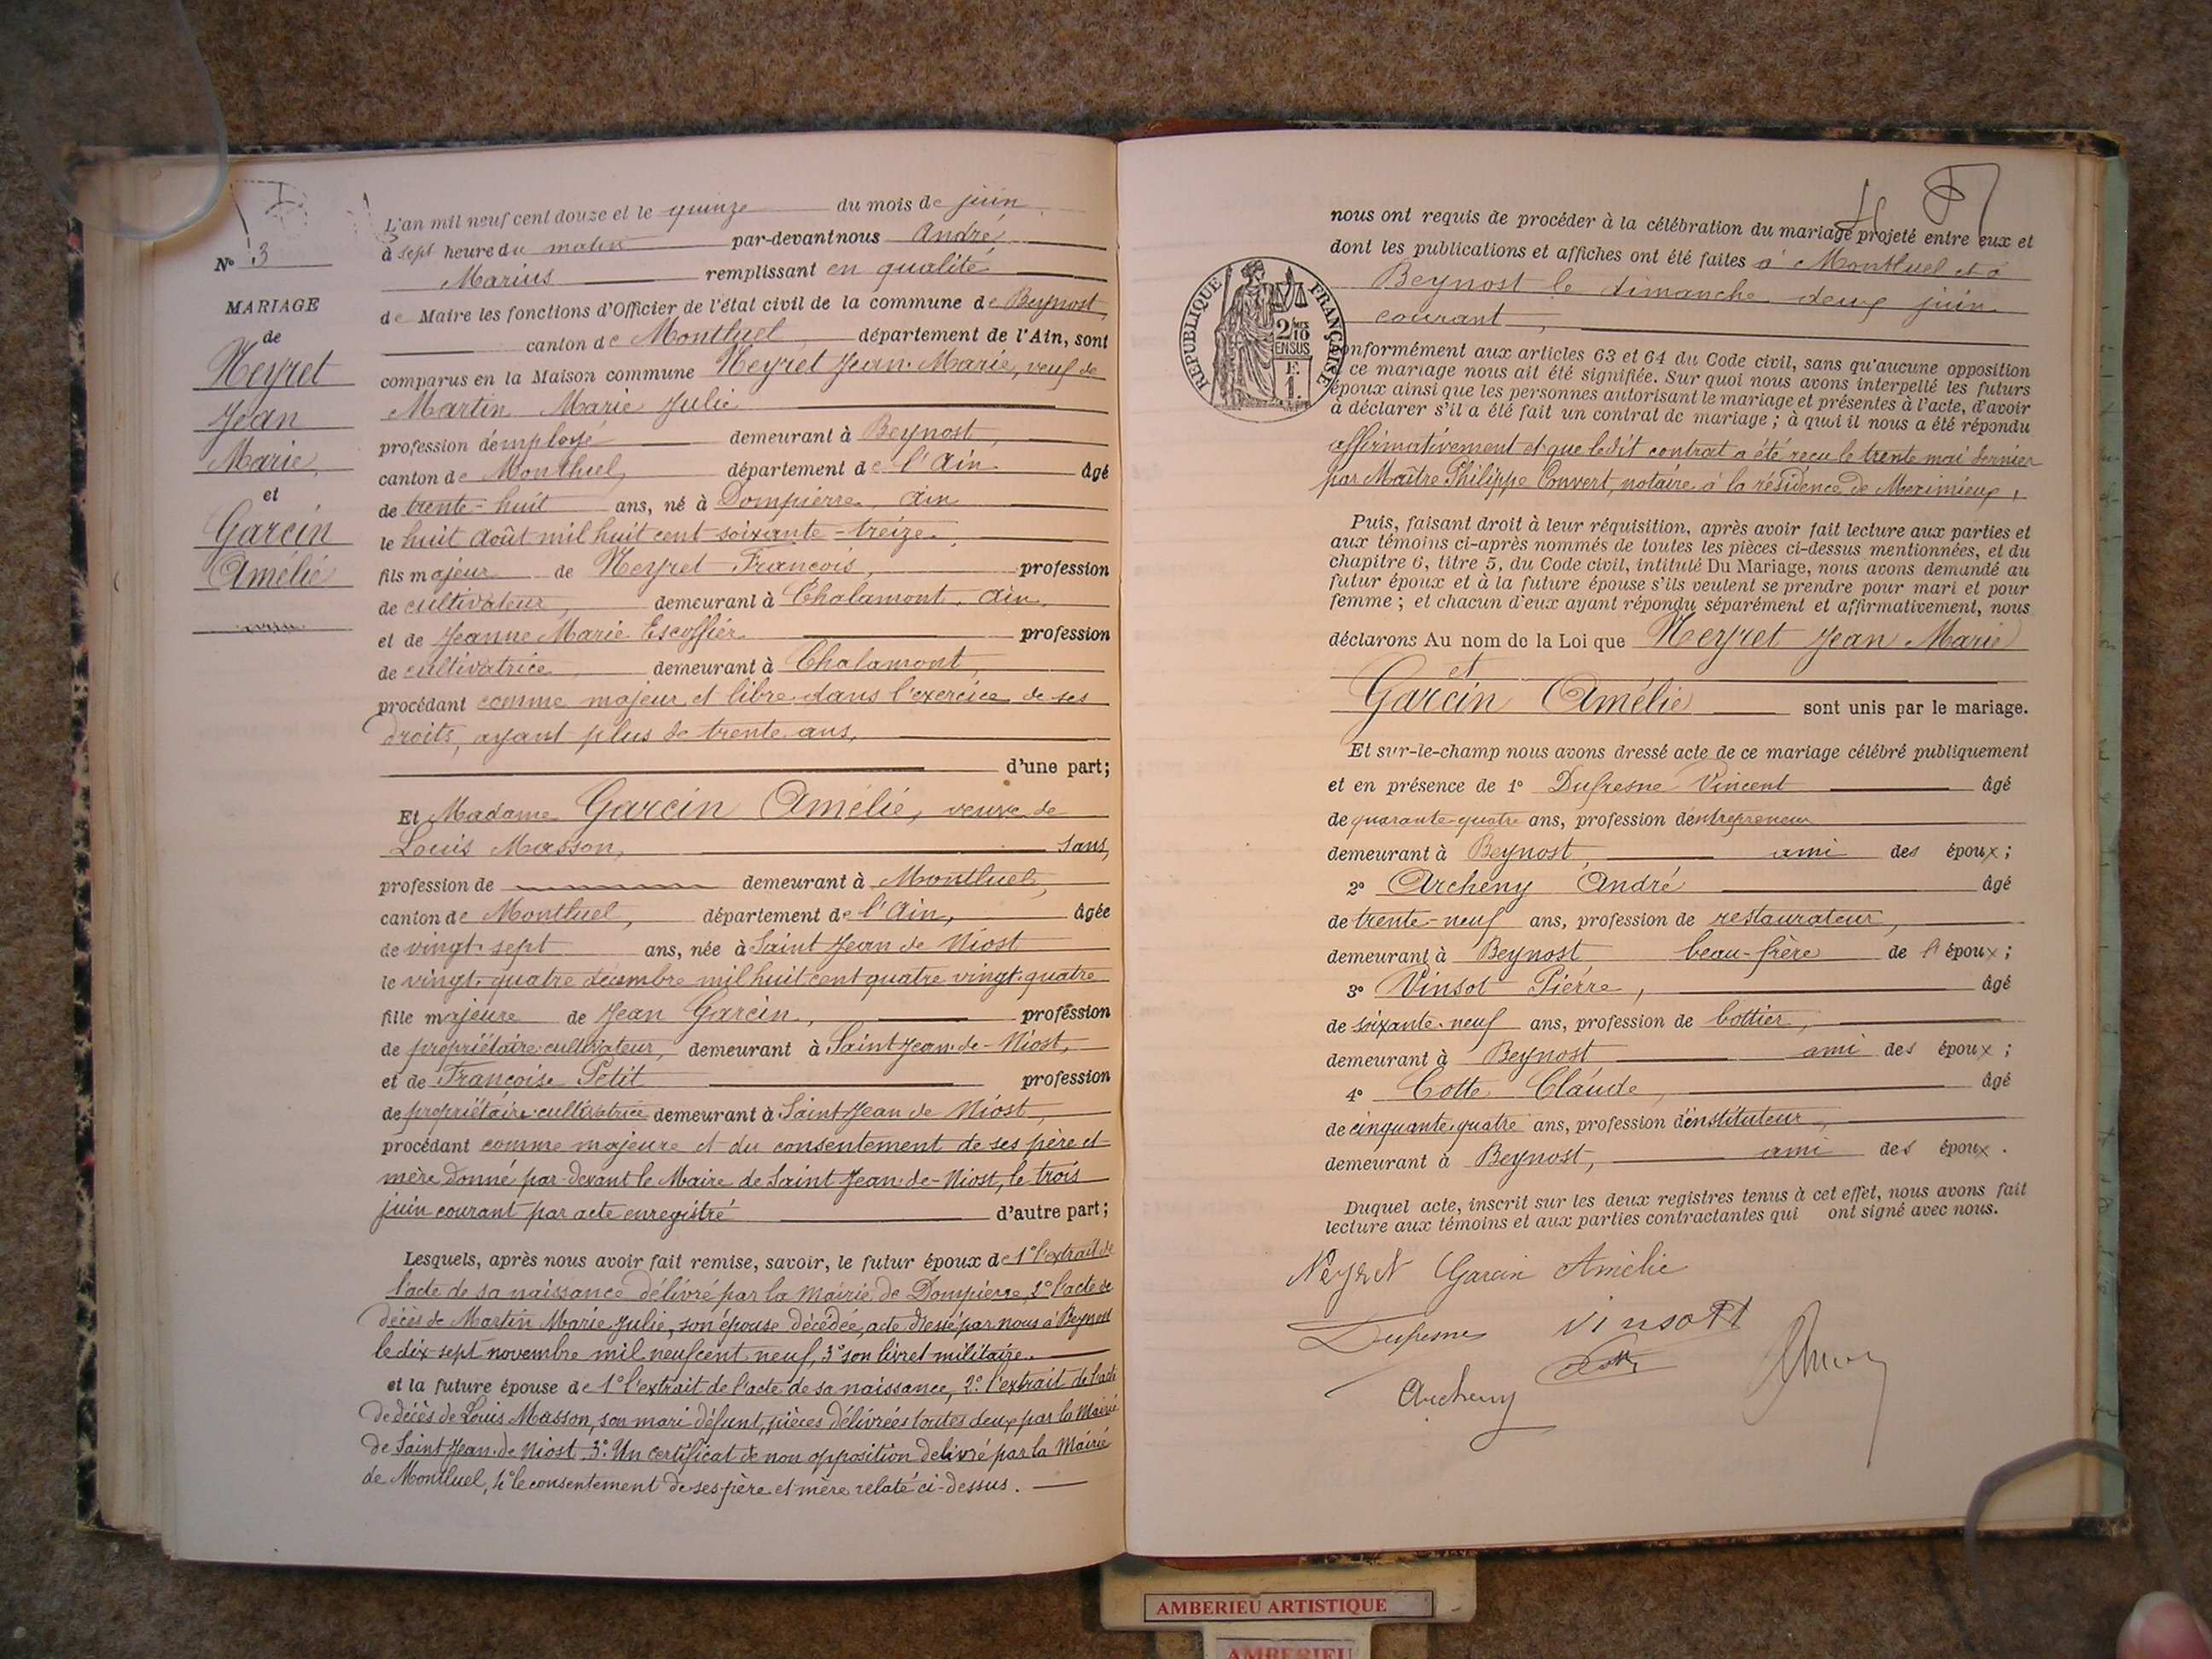 N° 3
MARIAGE
de
Neyret
Jean
Marie
et
Garcin
Amélie
L'an mil neuf cent douze et le quinze du mois de juin
à sept heure du matin par-devant nous André
Marius remplissant en qualité
de Maire les fonctions d'Officier de l'état civil de la commune de Beynost,
canton de Montluel, département de l'Ain, sont
comparus en la Maison commune Neyret Jean-Marie, veuf de
Martin Marie Julie
profession d'employé demeurant à Beynost,
canton de Montluel, département de l'Ain âgé
de trente-huit ans, né à Dompierre, Ain
le huit Août mil huit cent soixante-treize,
fils majeur de Neyret François, profession
de cultivateur, demeurant à Chalamont, Ain,
et de Jeanne Marie Escoffier profession
de cultivatrice demeurant à Chalamont,
procédant comme majeur et libre dans l'exercice de ses
droits, ayant plus de trente ans,
d'une part;
Et Madame Garcin Amélie, veuve de
Louis Masson, sans,
profession de demeurant à Montluel,
canton de Montluel, département de l'Ain, âgée
de vingt-sept ans, née à Saint Jean de Niost
le vingt-quatre décembre mil huit cent quatre vingt-quatre
fille majeure de Jean Garcin, profession
de propriétaire-cultivateur, demeurant à Saint-Jean-de-Niost,
et de Françoise Petit profession
de propriétaire-cultivatrice demeurant à Saint Jean de Niost,
procédant comme majeure et du consentement de ses père et
mère donné par-devant le Maire de Saint Jean-de-Niost, le trois
juin courant par acte enregistré d'autre part;
Lesquels, après nous avoir fait remise, savoir, le futur époux de 1° l'extrait de
l'acte de sa naissance délivré par la Mairie de Dompierre, 2° l'acte de
décès de Martin Marie Julie, son épouse décédée, acte dressé par nous à Beynost
le dix-sept novembre mil neuf cent neuf, 3° son livret militaire.
et la future épouse de 1° l'extrait de l'acte de sa naissance, 2° l'extrait de l'acte
de décès de Louis Masson, son mari défunt, pièces délivrées toutes deux par la Mairie
de Saint Jean-de Niost. 3° Un certificat de non opposition délivré par la Mairie
de Montluel, 4° le consentement de ses père et mère relaté ci-dessus.
nous ont requis de procéder à la célébration du mariage projeté entre eux et
dont les publications et affiches ont été faites à Montluel et à
Beynost le dimanche deux juin
courant,
REPUBLIQUE FRANÇAISE
2/10MES
EN SUS
F.
1.
onformément aux articles 63 et 64 du Code civil, sans qu'aucune opposition
ce mariage nous ait été signifiée. Sur quoi nous avons interpellé les futurs
époux ainsi que les personnes autorisant le mariage et présentes à l'acte, d'avoir
à déclarer s'il a été fait un contrat de mariage; à quoi il nous a été répondu
affirmativement et que ledit contrat a été reçu le trente mai dernier
par Maître Philippe Convert, notaire à la résidence de Meximieux,
Puis, faisant droit à leur réquisition, après avoir fait lecture aux parties et
aux témoins ci-après nommés de toutes les pièces ci-dessus mentionnées, et du
chapitre 6, titre 5, du Code civil, intitulé Du Mariage, nous avons demandé au
futur époux et à la future épouse s'ils veulent se prendre pour mari et pour
femme; et chacun d'eux ayant répondu séparément et affirmativement, nous
déclarons Au nom de la Loi que Neyret Jean Marie
et
Garcin Amélie sont unis par le mariage.
Et sur-le-champ nous avons dressé acte de ce mariage célébré publiquement
et en présence de 1° Dufresne Vincent âgé
de quarante-quatre ans, profession d'entrepreneur
demeurant à Beynost, ami des époux;
2° Archeny André âgé
de trente-neuf ans, profession de restaurateur,
demeurant à Beynost beau-frère de l'époux;
3° Vinsot Pierre, âgé
de soixante-neuf ans, profession de bottier,
demeurant à Beynost ami des époux;
4° Cotte Claude, âgé
de cinquante-quatre ans, profession d'instituteur,
demeurant à Beynost, ami des époux.
Duquel acte, inscrit sur les deux registres tenus à cet effet, nous avons fait
lecture aux témoins et aux parties contractantes qui ont signé avec nous.
Neyret Garcin Amélie
Dufresne Vinsott
Archeny
AMBERIEU ARTISTIQUE
AMBERIEU